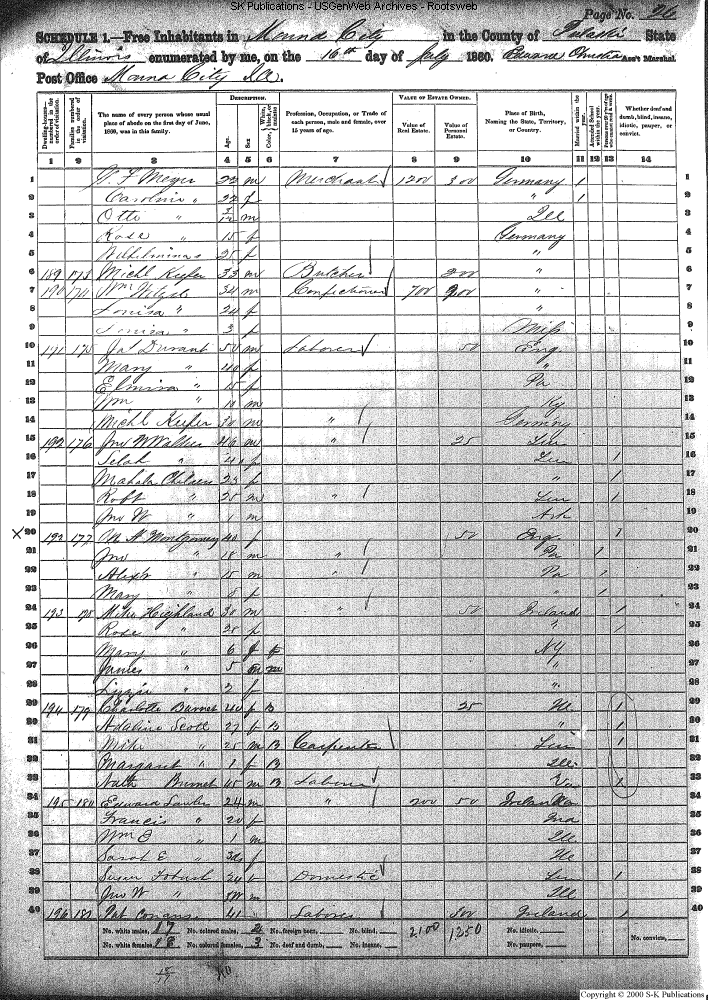 SK Publications - USGenWeb Archives - Rootsweb
Page No. 26
SCHEDULE 1.—Free Inhabitants in Mound City in the County of Pulaski State
of Illinois enumerated by me, on the 16th day of July 1860. Edward Ass't Marshal
Post Office Mound City Ills.
Dwelling-houses—numbered in the order of visitation.
Families numbered in the order of visitation.
The name of every person whose usual place of abode on the first day of June, 1860, was in this family.
DESCRIPTION.
Age.
Sex.
Color, White, black, or mulatto
Profession, Occupation, or Trade of each person, male and female, over 15 years of age.
VALUE OF ESTATE OWNED.
Value of Real Estate.
Value of Personal Estate.
Place of Birth, Naming the State, Territory, or Country.
Married within the year.
Attended School within the year.
Whether deaf and dumb, blind, insane, idiotic, pauper, or convict.
1 2 3 4 5 6 7 8 9 10 11 12 13 14
1 F Meyer 32 m Merchant 1200 300 Germany 1 1
2 Caroline " 22 f " 1 2
3 Otto " m Ill 3
4 Rose " 15 f Germany 4
5 Wilhelmina 25 f " 5
6 189 173 Michl 33 m Butcher 200 " 6
7 190 174 Wm 34 m Confectioner 700 200 " 7
8 Louisa " 24 f " 8
9 Louisa " 3 f Miss 9
10 191 175 Jas Durrant 50 m Laborer 50 Eng. 10
11 Mary " 40 f " 11
12 Elmira " 15 f Pa 12
13 Wm " 10 m Ky 13
14 Michl Keefer 30 m " Germany 14
15 192 176 Jno W Walker 46 m " 25 Ten 15
16 Selah " f Ten 1 16
17 Mahala 23 f " 1 17
18 Robt " 25 m " Ten 1 18
19 Jno W " 1 m Ark 19
20 192 177 A Montgomery 40 f 50 Eng. 1 20
21 Jno " 18 m " Pa 1 21
22 Alexr " 15 m " Pa 1 22
23 Mary " 8 f " 1 23
24 193 178 Mike Highland 30 m " 50 Ireland 1 24
25 Rose " 28 f " 1 25
26 Mary " 6 f NY 26
27 James " 5 m " 27
28 Lizzie " 2 f " 28
29 194 179 Charlotte Burnet 40 f B 25 Ill 1 29
30 Adaline Scott 27 f B " 1 30
31 Mike " 25 m B Carpenter Ten 1 31
32 Margaret " 1 f B Ill. 32
33 Nath Burnet 45 m B Laborer Va 1 33
34 195 180 Edward 24 m " 200 50 34
35 Francis " 20 f Ind 35
36 Wm E " 1 m Ill 36
37 Sarah E " f Ill 37
38 Susan 24 f Domestic Ten 1 38
39 Jno W " m Ill 39
40 196 181 Pat 41 Laborer 500 Ireland 1 40
No. white males, 17 No. colored males, 2 No. foreign born, No. blind, 2100 1250 No. idiotic, No. convicts,
No. white females, 18 No. colored females, 3 No. deaf and dumb, No. insane, No. paupers,
Copyright © 2000 S-K Publications